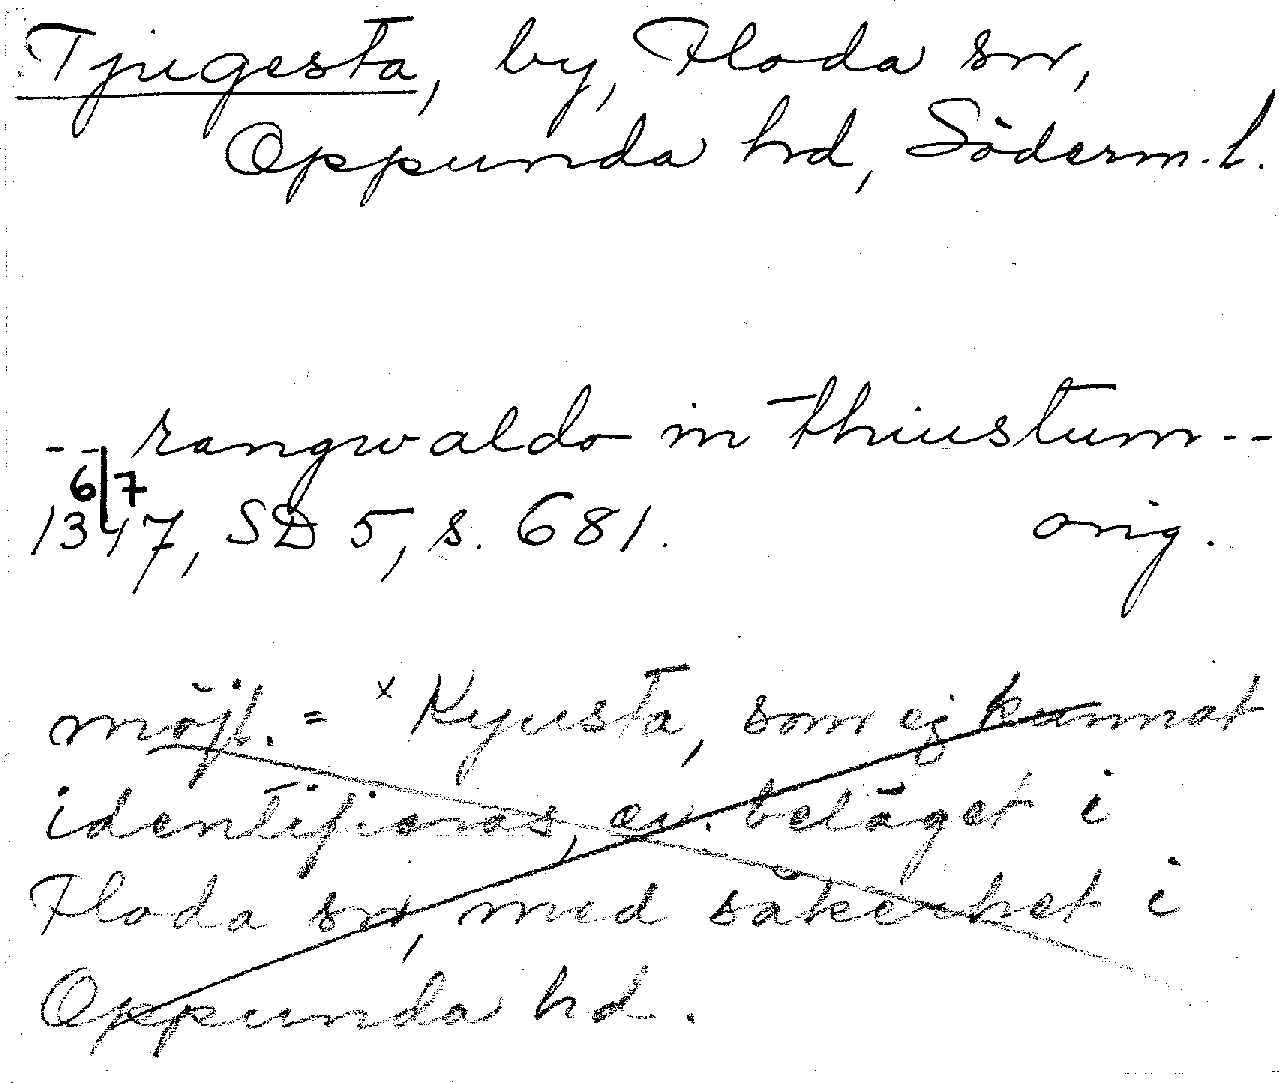 Tjugesta, by, Floda sn,
Oppunda hd, Söderm. l.
-- rangwaldo in thiustum --
6/7
1347, SD 5, s. 681. orig.
möjl. = x Kyusta, som ej kunnat
identifieras, ev. beläget i
Floda sn, med säkerhet i
Oppunda hd.